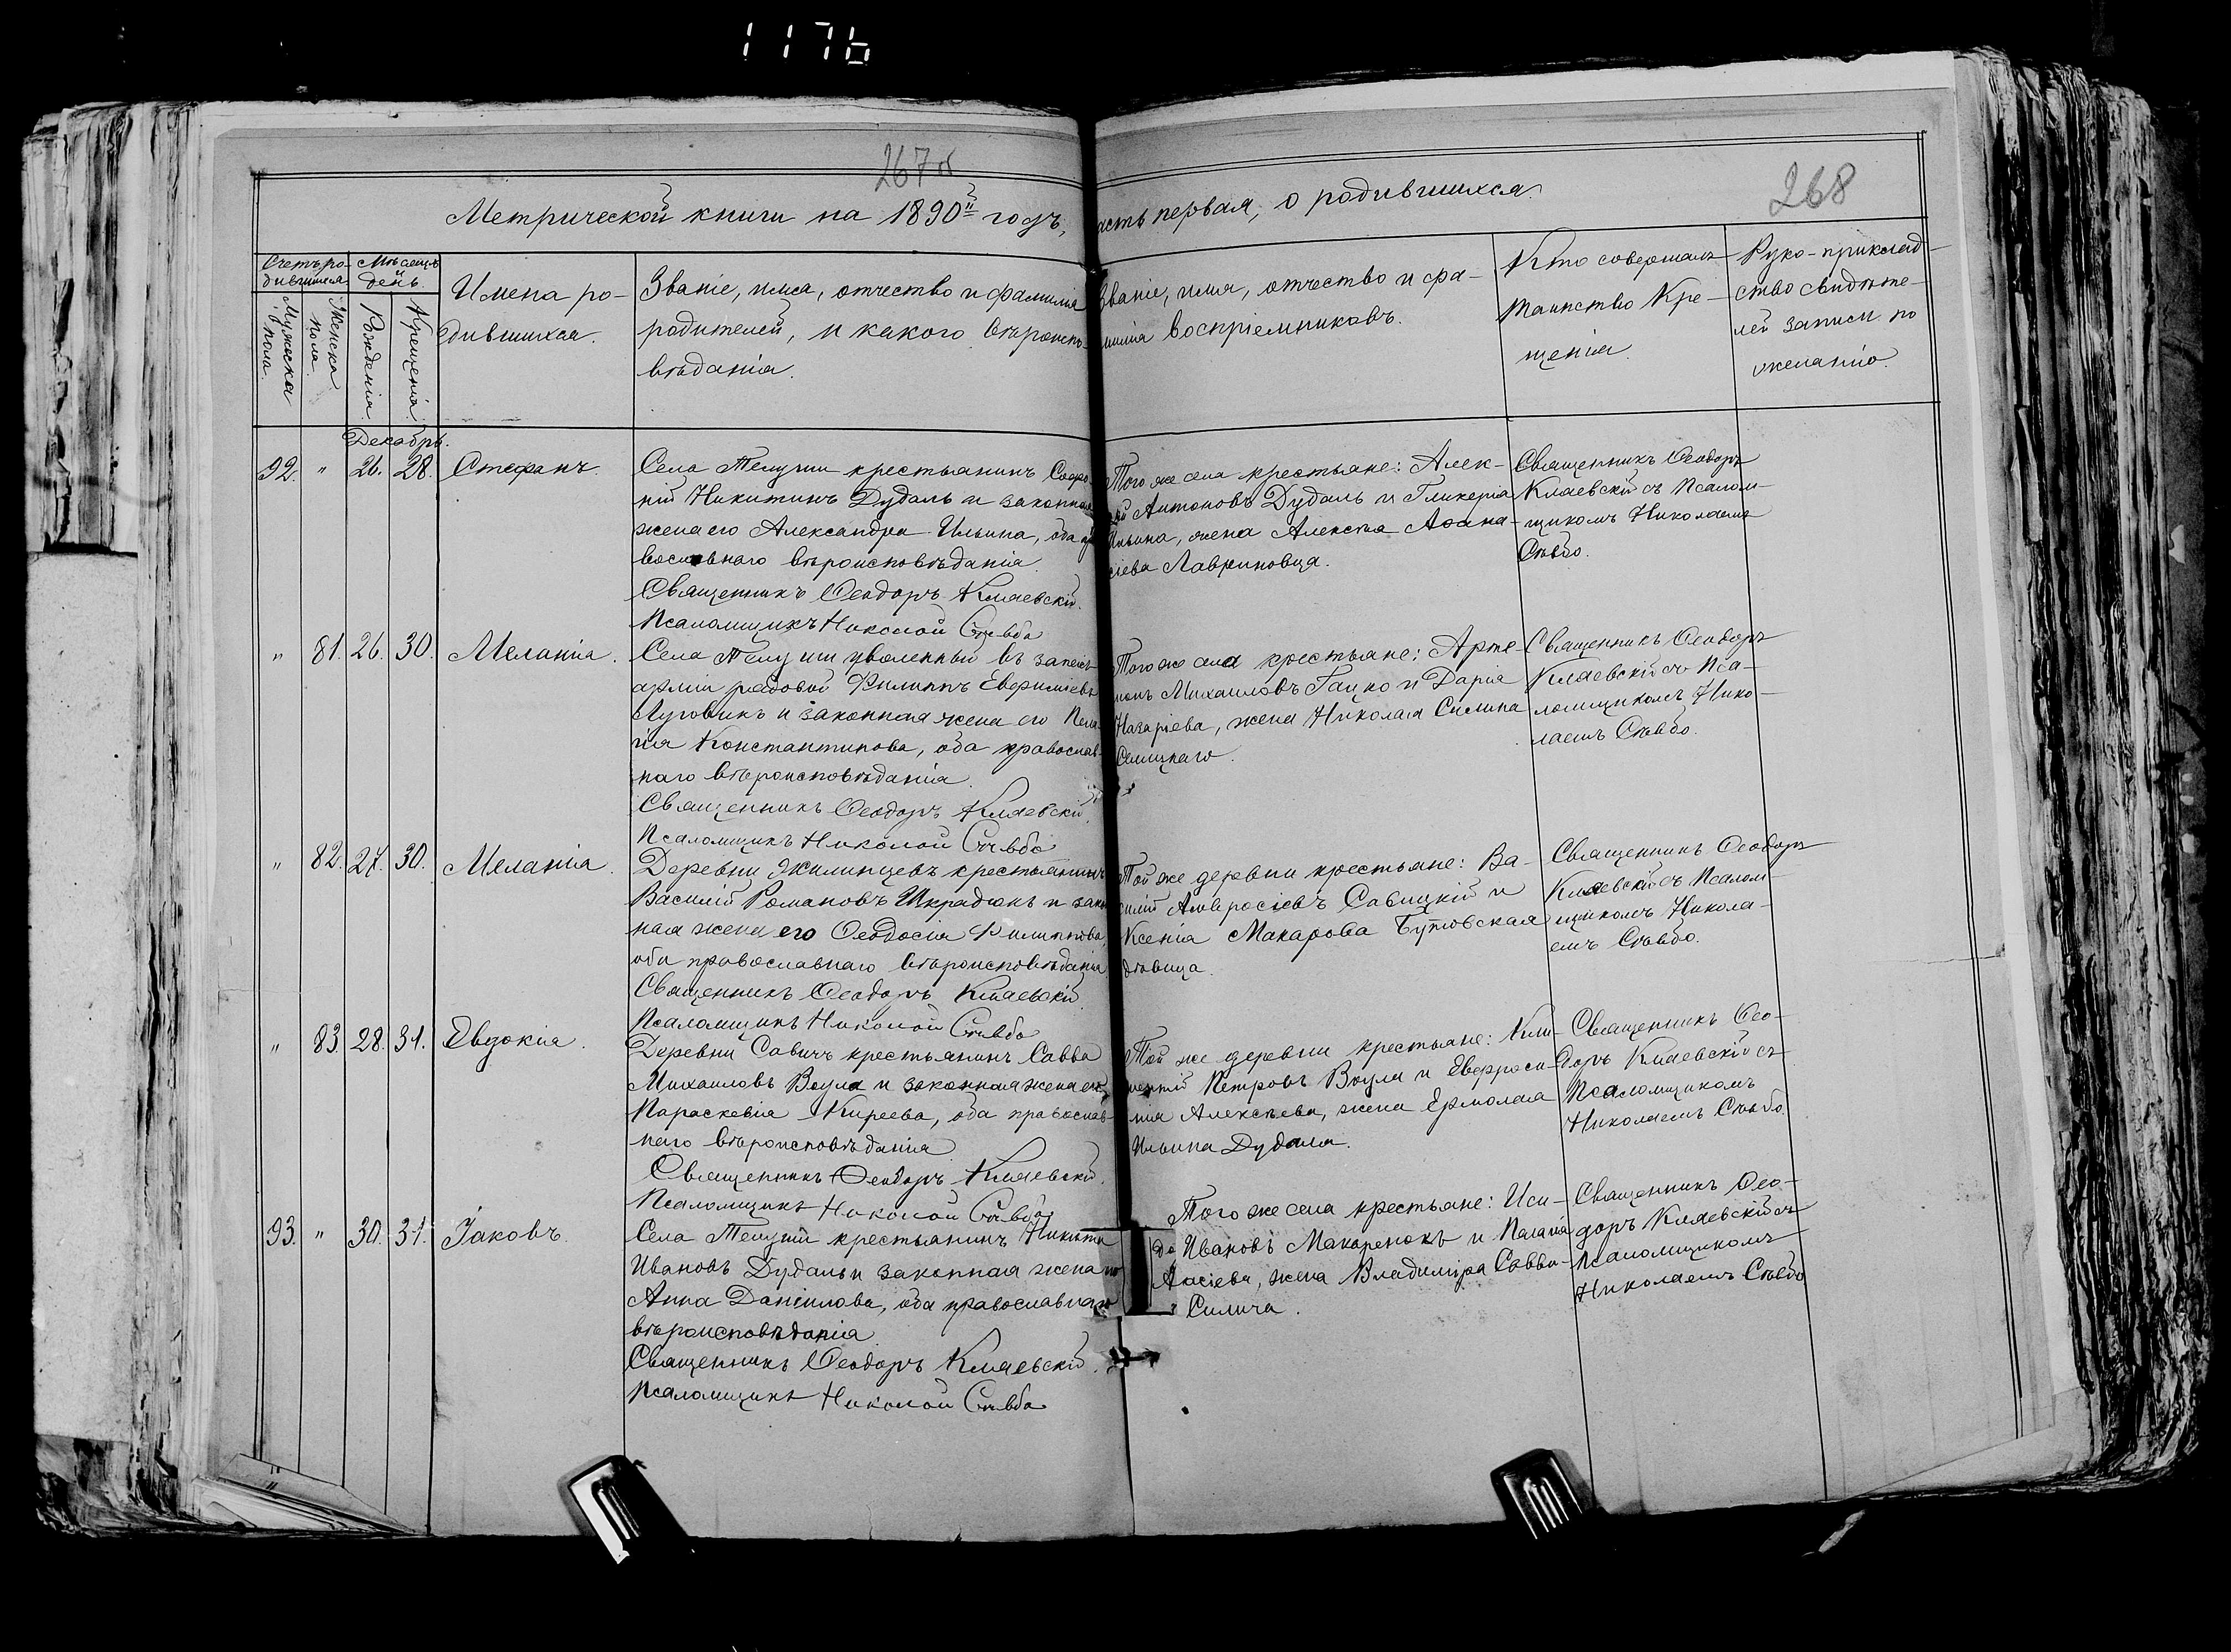 1176
267об
268
Метрической книги на 1890й годъ,
асть первая, о родившихся.
Счетъ ро-
дившихся
Мѣсяцъ
день.
Мужеска
пола.
Женска
пола.
Рожденія.
Крещенія.
Имена ро-
дившихся.
Званіе, имя, отчество и фамилія
родителей, и какого вѣроиспо-
вѣданія.
Званіе, имя, отчество и фа-
милія воспріемниковъ.
Кто совершалъ
таинство Кре-
щенія.
Руко-приклад-
ство свидѣте-
лей записи по
желанію.
Декабрь.
92. " 26. 28. Стефанъ.
Села Телуши крестьянинъ Софро-
ній Никитинъ Дудаль и законная
жена его Александра Ильина, оба пра
вославнаго вѣроисповѣданія.
Священникъ Ѳеодоръ Кляевскій.
Псаломщикъ Николай Сѣвбо
Того же села крестьяне: Алек-
ѣй Антоновъ Дудаль и Гликерія
Ильина, жена Алексѣя Аѳана-
сіева Лавриновца.
Священникъ Ѳеодоръ
Кляевскій съ Псалом-
щикомъ Николаемъ
Сѣвбо.
" 81. 26. 30. Меланія.
Села Телуши уволенный въ запасъ
арміи рядовой Филиппъ Евфиміевъ
Луговикъ и законная жена его Пела
гія Константинова, оба православ-
наго вѣроисповѣданія.
Священникъ Ѳеодоръ Кляевскій.
Псаломщикъ Николай Сѣвбо
Того же села крестьяне: Арте-
монъ Михаиловъ Гацко и Дарія
Назаріева, жена Николая Силина
Селицкаго.
Священникъ Ѳеодоръ
Кляевскій съ Пса-
ломщикомъ Нико-
лаемъ Сѣвбо.
" 82. 27. 30. Меланія.
Деревни Жилинцевъ крестьянинъ
Василій Романовъ Шкрадюкъ и закон
ная жена его Ѳеодосія Филиппова,
оба православнаго вѣроисповѣданія.
Священникъ Ѳеодоръ Кляевскій
Псаломщикъ Николай Сѣвбо
Той же деревни крестьяне: Ва-
силій Амвросіевъ Савицкій и
Ксенія Макарова Бутовская
дѣвица.
Священникъ Ѳеодоръ
Кляевскій съ Псалом-
щикомъ Никола-
емъ Сѣвбо.
" 83. 28. 31. Евдокія.
Деревни Савичъ крестьянинъ Савва
Михаиловъ Воула и законная жена его
Параскевія Киреева, оба православ-
наго вѣроисповѣданія
Священникъ Ѳеодоръ Кляевскій.
Псаломщикъ Николай Сѣвбо
Той же деревни крестьяне: Кли-
ментій Петровъ Воула и Евфроси-
нія Алексѣева, жена Ермолая
Ильина Дудаля.
Священникъ Ѳео-
доръ Кляевскій съ
Псаломщикомъ
Николаемъ Сѣвбо
93. " 30. 31. Іаковъ.
Села Телуши крестьянинъ Никита
Ивановъ Дудаль и законная жена его
Анна Даніилова, оба православнаго
вѣроисповѣданія.
Священникъ Ѳеодоръ Кляевскій.
Псаломщикъ Николай Сѣвбо
Того же села крестьяне: Иси-
дъ Ивановъ Макаренокъ и Пелагія
жена Владиміра Савви-
Силича.
Священникъ Ѳео-
доръ Кляевскій съ
Псаломщикомъ
Николаемъ Сѣвбо